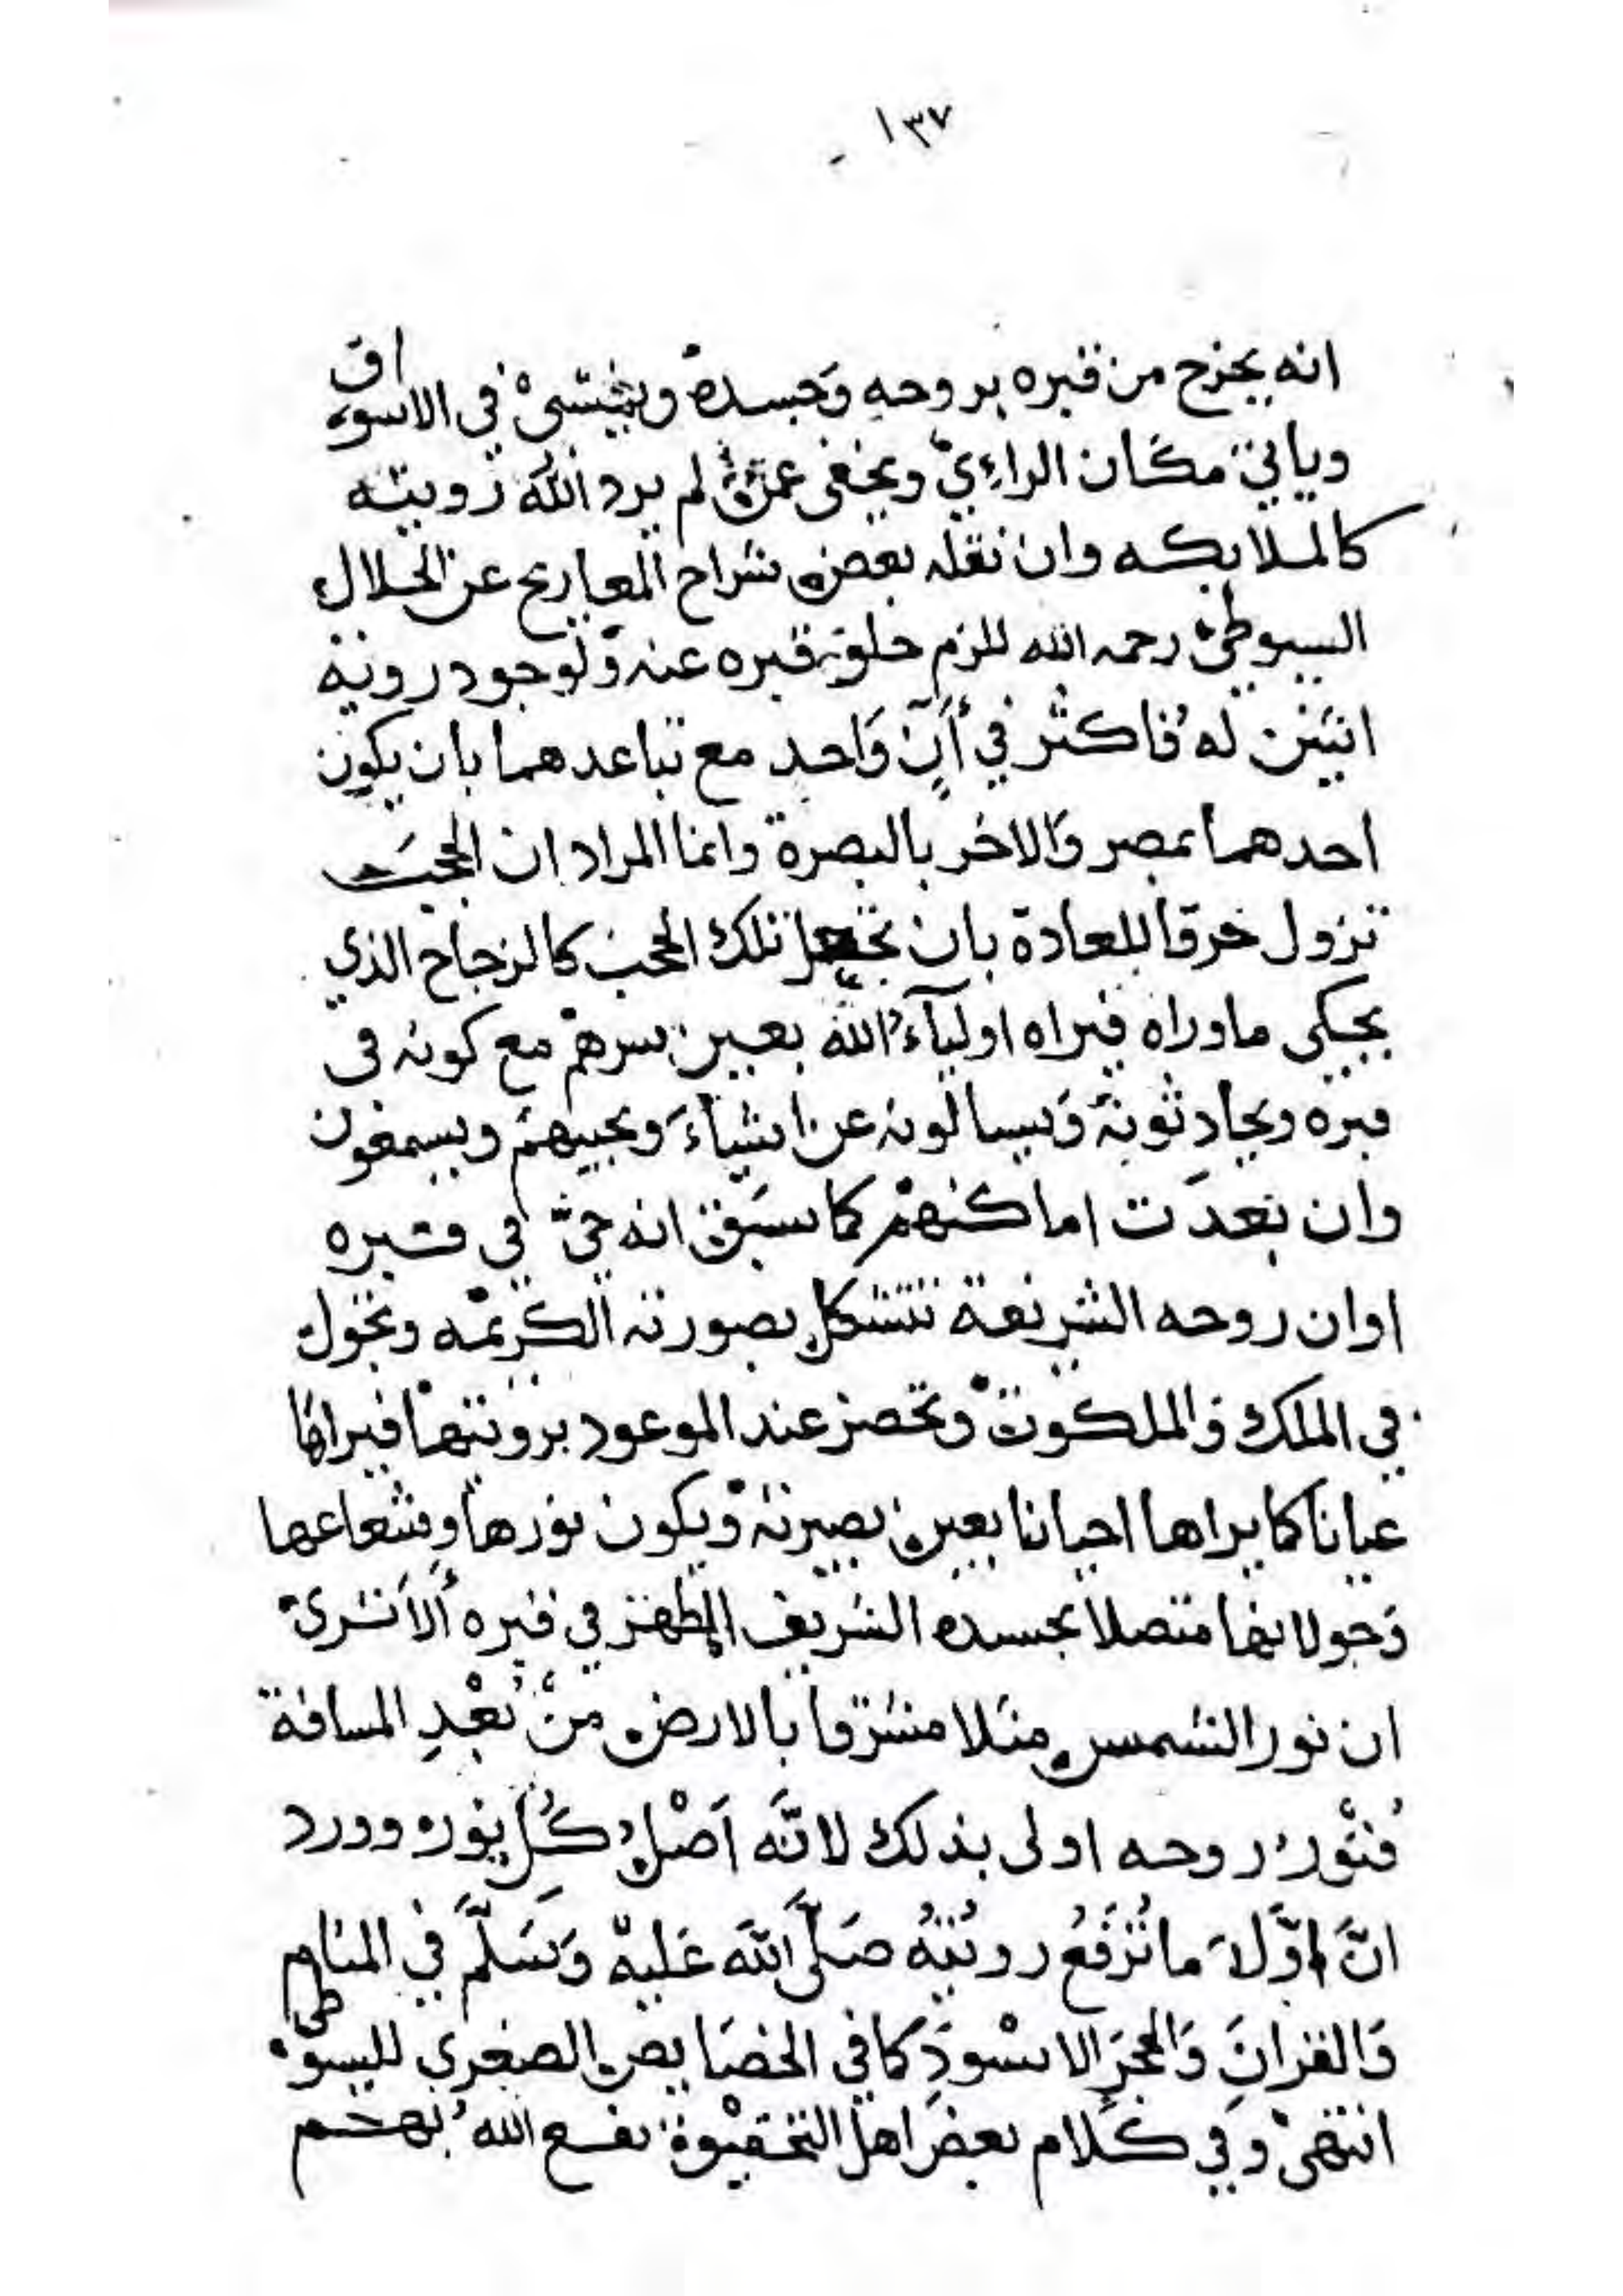 ١٣٧
انه يخرج من قبره بروحه وَجسده ويمشىْ في الاسواق
وياتي مكان الراءِيّ ويخفى عمن لم يرد اللّٰه رويته
كالملايكه وان نقله بعض شراح المعاريج عن الجلال
السيوطي رحمه الله للزم خلو قبره عنه ولوجود روية
اثنين له فاكثر في أَنٍ وَاحد مع تباعدهما بان يكون
احدهما بمصر وَالاخر بالبصرة وانما المراد ان الحجب
تزول خرقا للعادة بان تجعل تلك الحجب كالزجاج الذي
يحكى ماوراه فيراه اوليآءُ اللّٰه بعين سرهمْ مع كونه فى
قبره ويحادثونهْ وَيسالونه عن اشياءَ ويجيبهمْ ويسمعون
وان بعدَت اماكنهمْ كما سبق انه حىّ في قبره
اوان روحه الشريفة تتشكل بصورته الكريمه وتجول
في الملك وَالملكوت وتحضر عند الموعود برويتها فيراها
عيانا كما يراها احيانا بعين بصيرته ويكون نورها وشعاعها
وَجولانها متصلا بجسده الشريف المطهر في قبره أَلاَ ترىْ
ان نور الشمس مثلا مشرقا بالارض منْ بُعْدِ المسافة
فنُوْرُ روحه اولى بذلك لانَّه اَصْلُ كُلِ نوره وورد
انَّ اوَّلَ ما تُرْفَعُ رويتُهُ صَلَّى اللّٰه عَليهْ وَسَلَّمَ في المنام
وَالقرانَ وَالحجرَ الاسْودَ كما في الخصَايص الصغري للسيوطى
انتهىْ وفي كَلام بعضَ اهل التحقيق نفع اللّٰهُ بهم